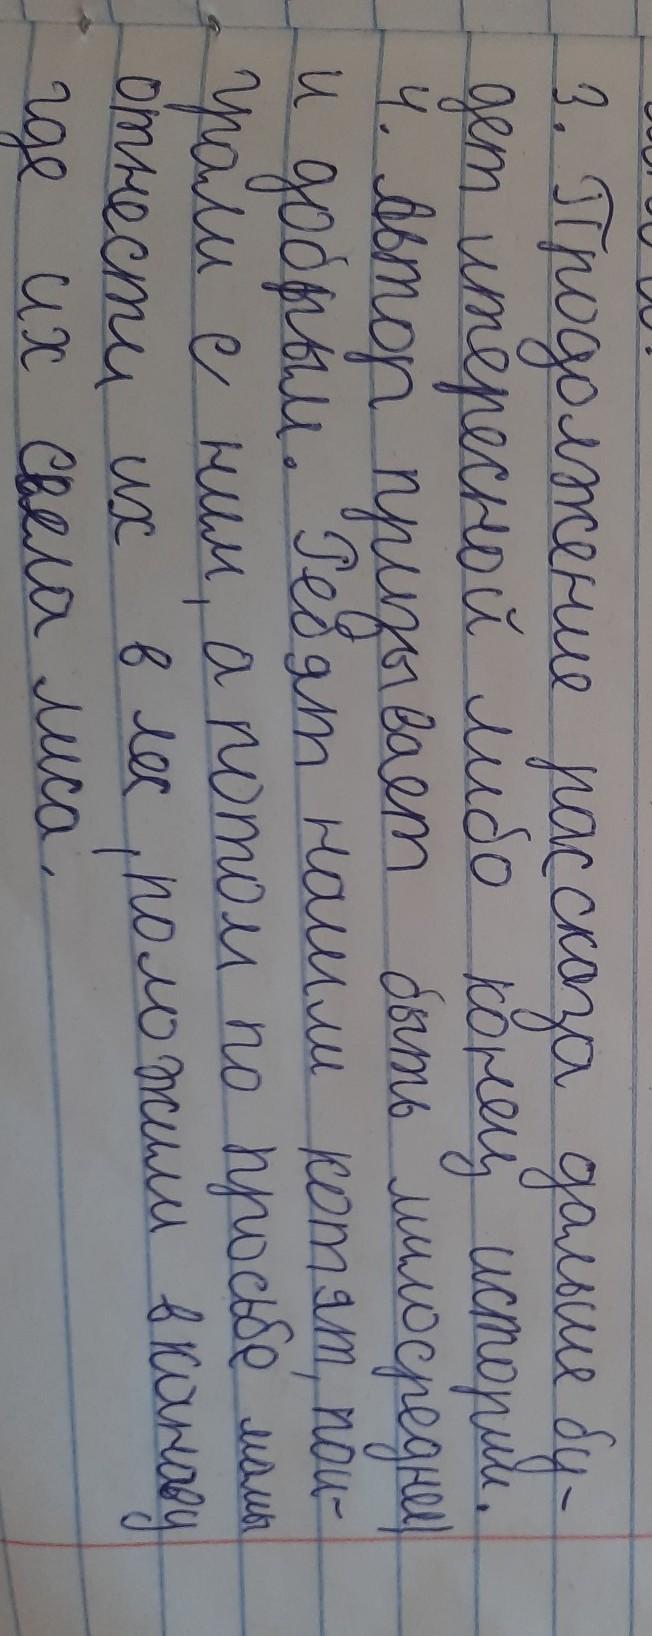 3. Продолжение рассказа дальше бу-
дет итересной либо конец истории.
4. Автор призывает быть милосредней
и добрым. Ребят нашли котят, пои-
грали с ним, а потом по просьбе мамы
отнести их в лес, положили в канаву
где их съела лиса.